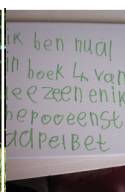 ik ben nu al
in boek 4 van
leezeen en ik
hepooeenst
adpelBet